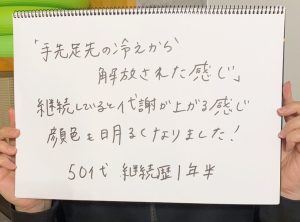 「手先足先の冷えから
解放された感じ」
継続していると代謝が上がる感じ
顔色も明るくなりました！
50代 継続歴1年半